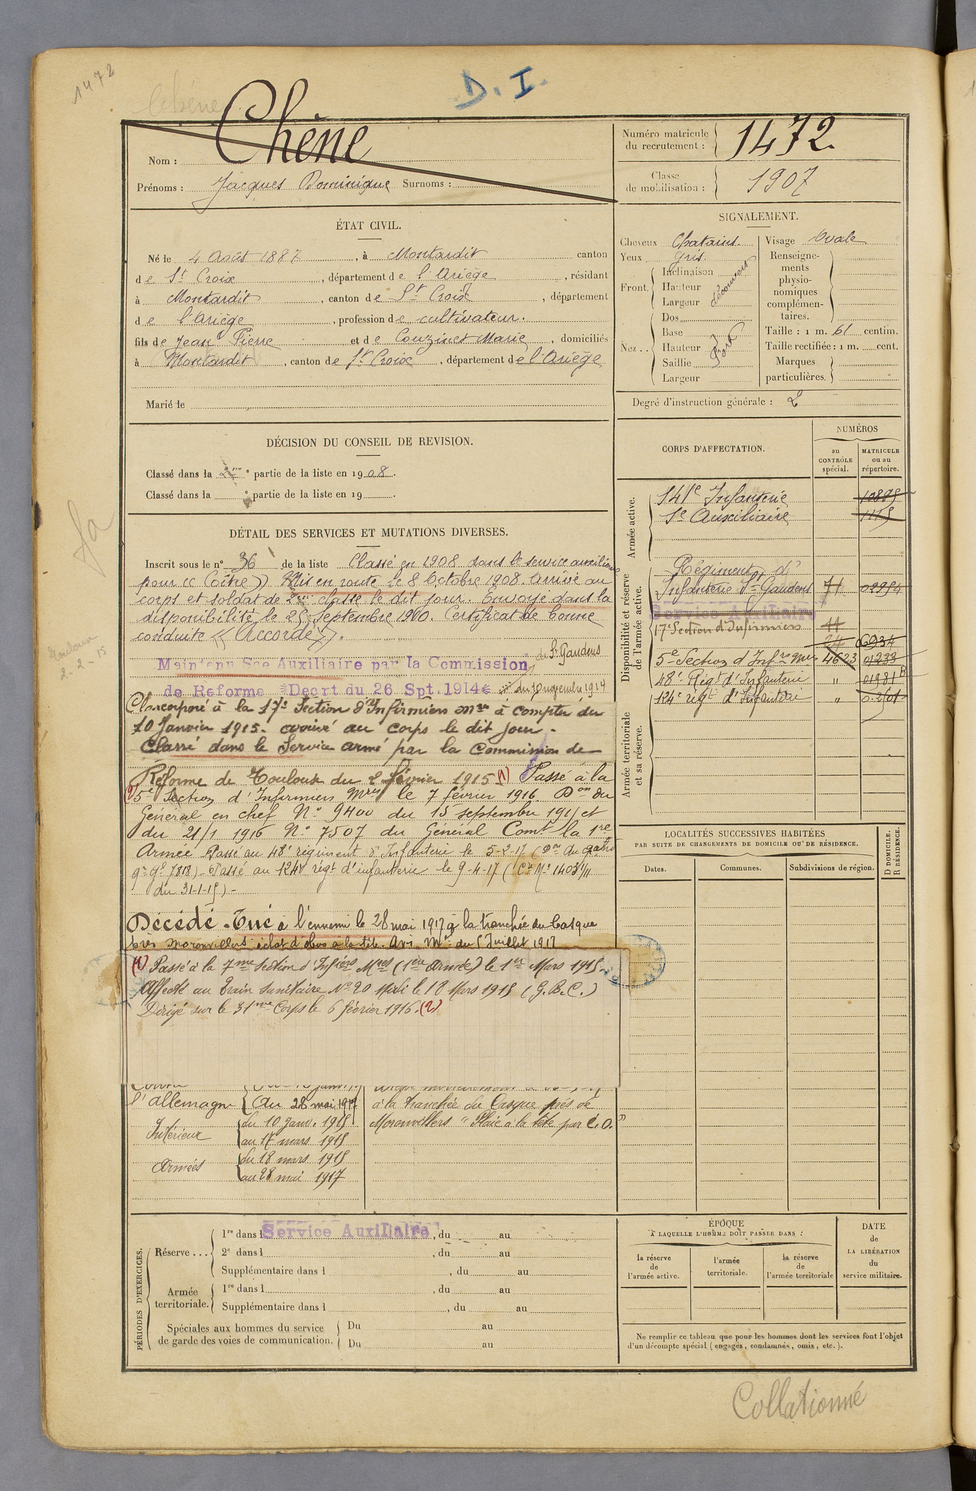 1472
D. I.
Chêne
Nom : Chêne
Prénoms : Jacques Dominique Surnoms :
Numéro matricule du recrutement : 1472
Classe de mobilisation : 1907
ÉTAT CIVIL.
Né le 4 Août 1887, à Montardit canton
de St Croix, département de l'Ariège, résidant
à Montardit, canton de St Croix, département
de l'Ariège, profession de cultivateur.
fils de Jean Pierre et de Couzinet Marie, domiciliés
à Montardit, canton de St Croix, département de l'Ariège
Marié le
SIGNALEMENT.
Cheveux Chatains.
Yeux gris
Front. Inclinaison
Hauteur
Largeur
découvert
Nez.. Dos
Base
Hauteur
Saillie
Largeur
fort
Visage Ovale
Renseignements physionomiques complémentaires.
Taille : 1 m. 61 centim.
Taille rectifiée : 1 m. cent.
Marques particulières.
Degré d'instruction générale : 2
DÉCISION DU CONSEIL DE REVISION.
Classé dans la 2me partie de la liste en 1908.
Classé dans la e partie de la liste en 19
CORPS D'AFFECTATION.
NUMÉROS
au CONTRÔLE spécial.
MATRICULE ou au répertoire.
Armée active.
141e Infanterie
Sce Auxiliaire
Disponibilité et réserve de l'armée active.
Régiment d'
Infanterie St Gaudens
Service Auxiliaire
17e Section d'Infirmiers
5e Section d'Infirmiers
48e Régt d'Infanterie "
124e régt d'Infanterie "
Armée territoriale et sa réserve.
DÉTAIL DES SERVICES ET MUTATIONS DIVERSES.
Inscrit sous le n° 36 de la liste Classé en 1908 dans le service auxiliaire
pour (Goître) Mis en route le 8 Octobre 1908. Arrivé au
corps et soldat de 2me classe le dit jour. Envoyé dans la
disponibilité le 25 Septembre 1910. Certificat de bonne
conduite "Accordé".
de St Gaudens
Maintenu Sce Auxiliaire par la Commission
de Reforme Décrt du 26 Spt. 1914 du 10 novembre 1914
Incorporé à la 17e Section d'Infirmiers mres à compter du
10 Janvier 1915. arrivé au corps le dit jour.
Classé dans le Service armé par la Commission de
Réforme de Toulouse du 2 février 1915 (1) Passé à la
(2) 5e Section d'Infirmiers Mres le 7 février 1916. Don du
Général en chef N° 9400 du 15 septembre 1915 et
du 21/1 1916 N° 7507 du Général Comt la 1re
Armée Passé au 48e régiment d'Infanterie le 5-2-17
Passé au 124e régt d'infanterie le 9-4-17
du 31-1-15)
Décédé - Tué à l'ennemi le 28 mai 1917 à la tranchée du Casque
près Moronvillers éclat d'obus à la tête. Avis Mel du 5 Juillet 1917
(1) Passé à la 7me section d'Infiers Mres (1ère Armée) le 1er Mars 1915.
Affecté au Train Sanitaire N° 20 le 18 Mars 1915 (G.B.C.)
Dirigé sur le 31me Corps le 6 février 1916. (2)
l'allemagne du 28 mai 1917
à la tranchée du Casque près de
Moronvillers "Plaie à la tête par E.O."
Intérieur du 10 janv. 1915
au 17 mars 1915
Armées du 18 mars 1915
au 28 mai 1917
LOCALITÉS SUCCESSIVES HABITÉES
PAR SUITE DE CHANGEMENTS DE DOMICILE OU DE RÉSIDENCE.
Dates.
Communes.
Subdivisions de région.
D DOMICILE.
R RÉSIDENCE.
PÉRIODES D'EXERCICES.
Réserve... 1re dans l Service Auxiliaire, du au
2e dans l , du au
Supplémentaire dans l , du au
Armée territoriale. 1re dans l , du au
Supplémentaire dans l , du au
Spéciales aux hommes du service de garde des voies de communication. Du au
Du au
ÉPOQUE
À LAQUELLE L'HOMME DOIT PASSER DANS :
la réserve de l'armée active.
l'armée territoriale.
la réserve de l'armée territoriale
DATE de LA LIBÉRATION du service militaire.
Ne remplir ce tableau que pour les hommes dont les services font l'objet
d'un décompte spécial (engagés, condamnés, omis, etc.).
Collationné